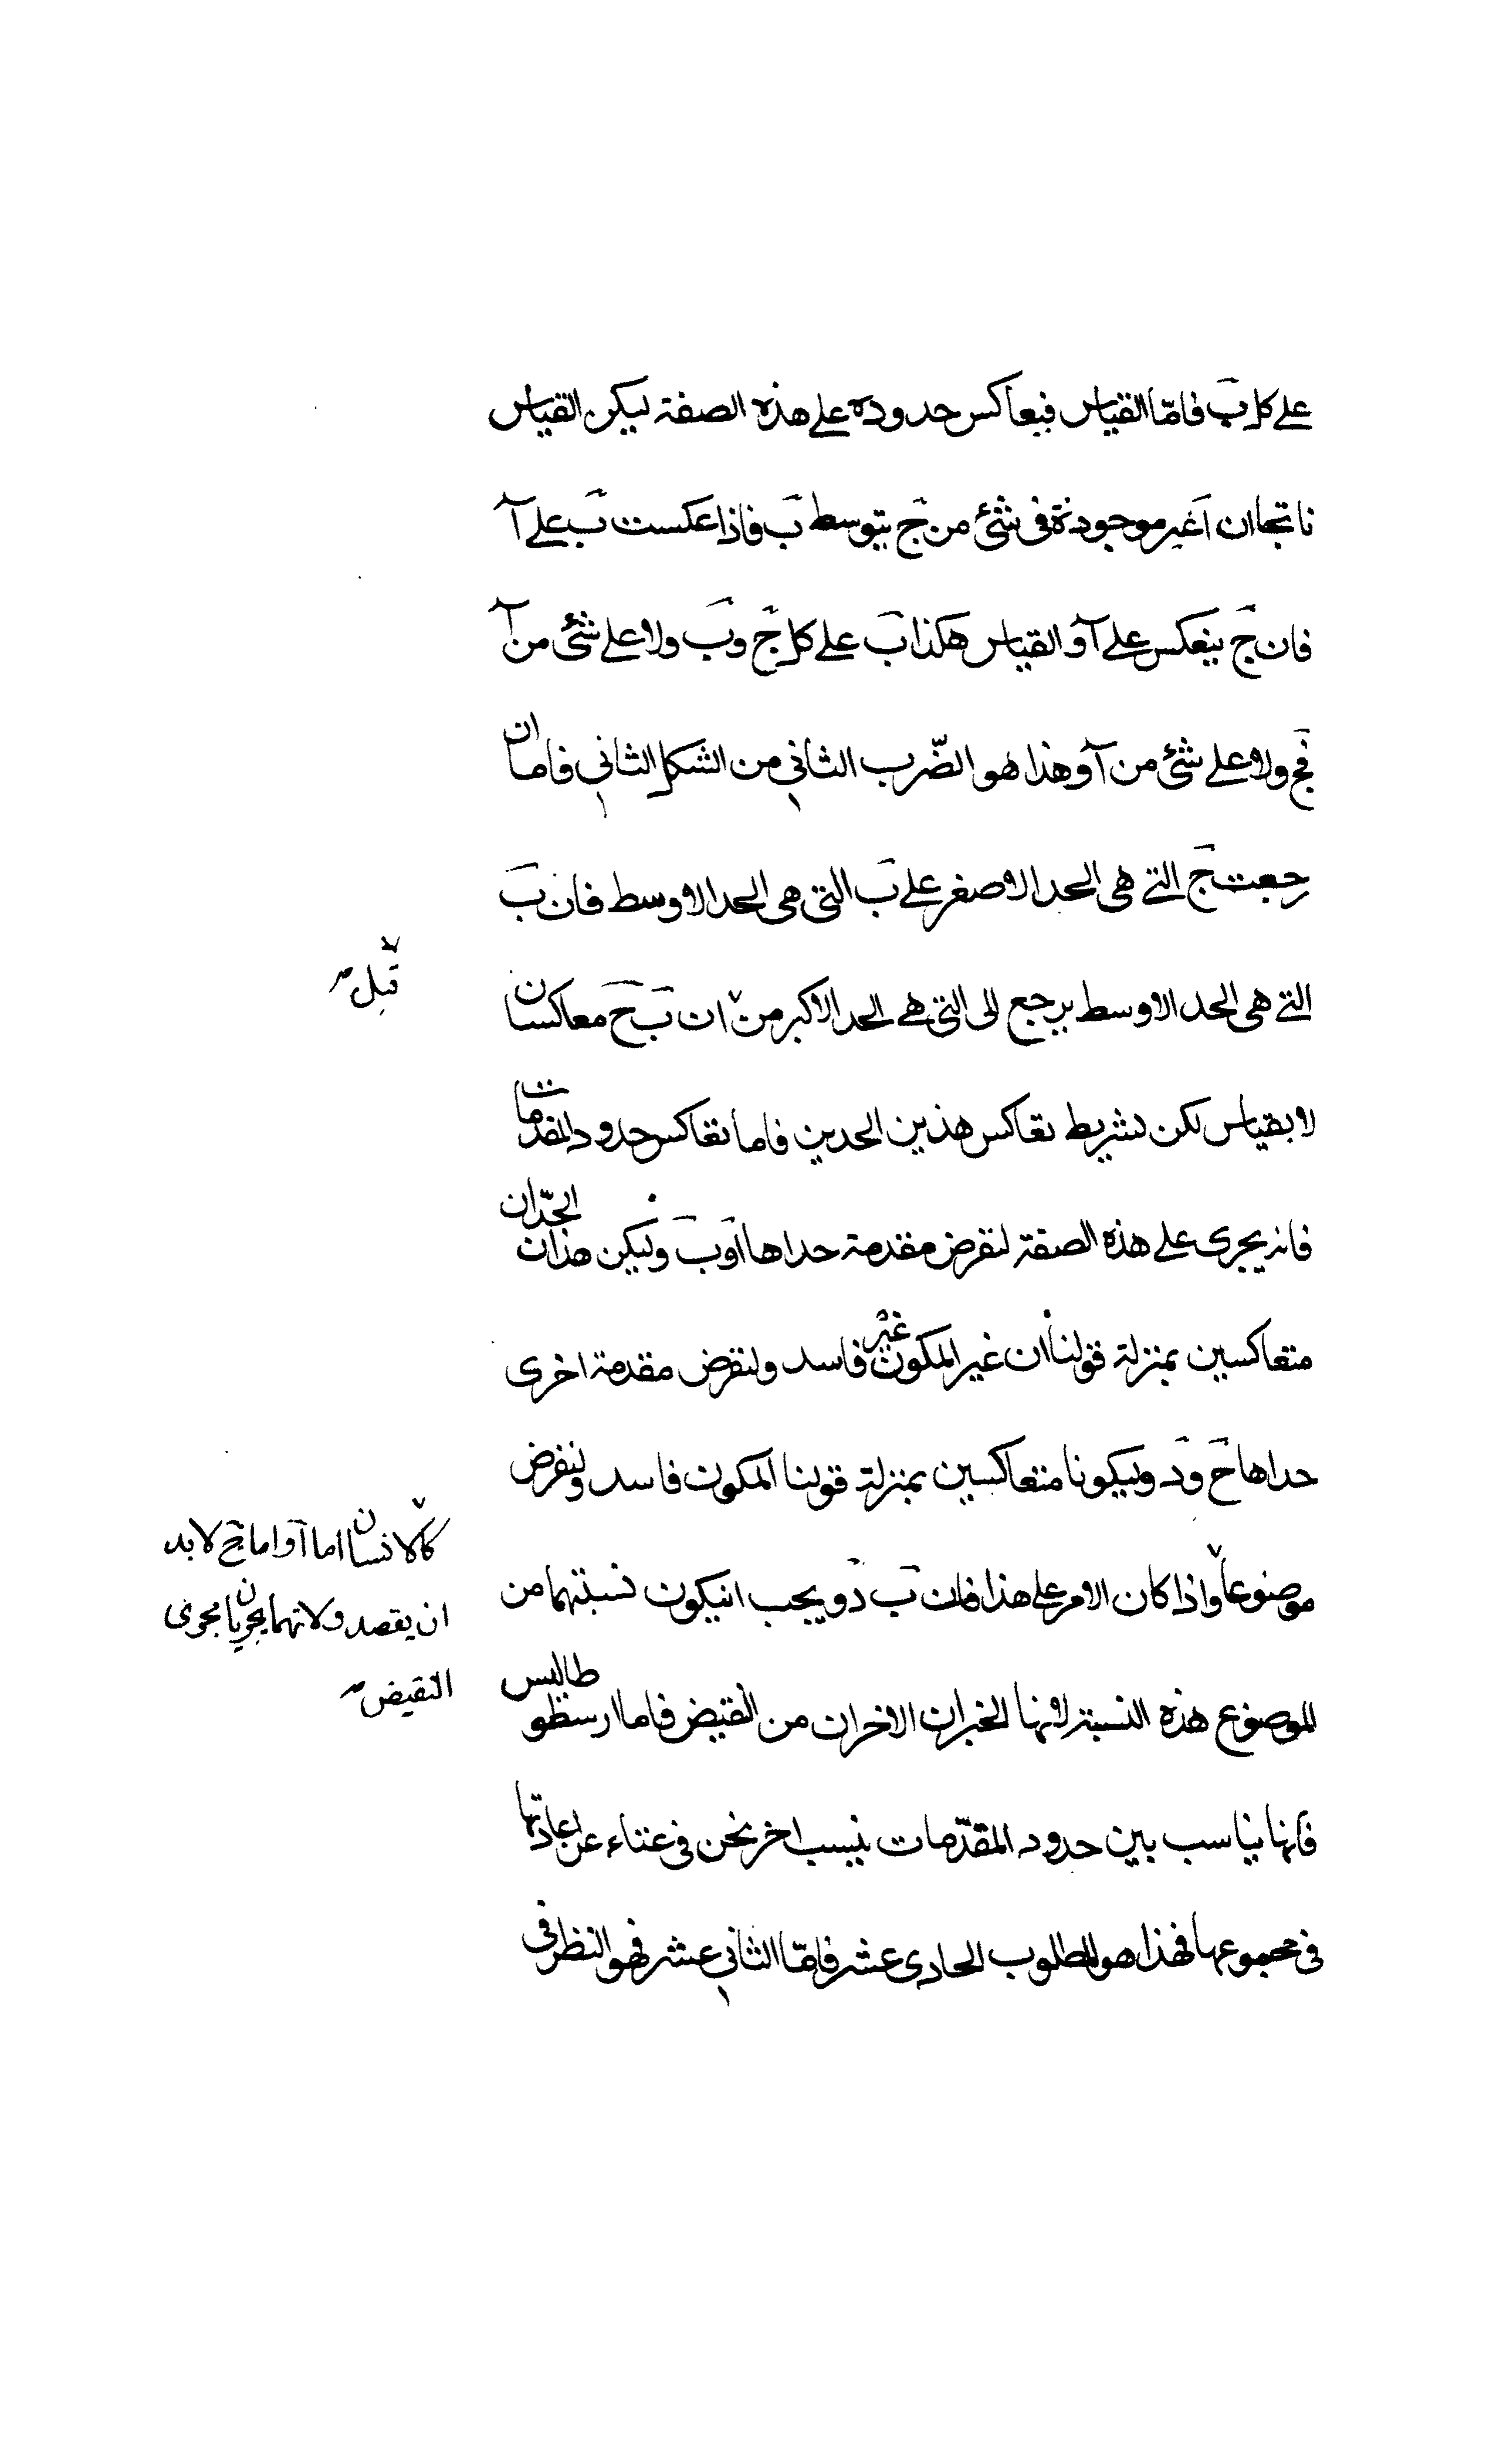 على كل ب فامّا القياس فبعاكس حدوده على هذه الصفة ليكن القياس
ناتجا ان آ غير موجودة فى شئ من ج بتوسط ب فاذا عكست ب على آ
فان ج ينعكس على آ و القياس هكذا ب على كل ج وب ولا على شئ من آ
فج ولا على شئ من آ وهذا هو الضّرب الثانى من الشكل الثانى فاما ان
رجعت ج التى هى الحد الاصغر على ب التى هى الحد الاوسط فان ب
التى هى الحد الاوسط يرجع الى التى هى الحد الاكبر من ان ب ح معاكسان
قبل
لا بقياس لكن بشريط تعاكس هذين الحدين فاما تعاكس حدود المقدمات
فانه يجرى على هذه الصفة لنفرض مقدمة حداها آ وب وليكن هذان الحدّان
متعاكسين بمنزلة قولنا ان غير المكون غير فاسد ولنفرض مقدمة اخرى
حداها ح ود وليكونا متعاكسين بمنزلة قولنا المكون فاسد ولنفرض
موضوعا واذا كان الامر على هذا فان ب د و يجب انيكون نسبتهما من
كالانسان اما آ واما ج لابد
ان يقصد ولانهما يجريان مجرى
النقيض
الموضوع هذه النسبة لانها الخبران الاخران من النقيض فاما ارسطوطاليس
فانها يناسب بين حدود المقدّمات بنسب اخر نحن فى غناء عن اعادتها
فى مجموعها فهذا هو المطلوب الحادى عشر فامّا الثانى عشر فهو النظر فى